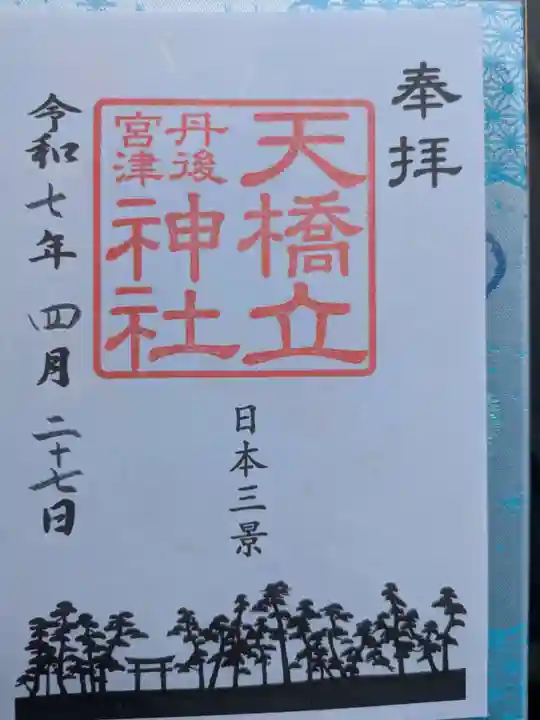 奉拝
天橋立
丹後
宮津
神社
日本三景
令和七年四月二十七日